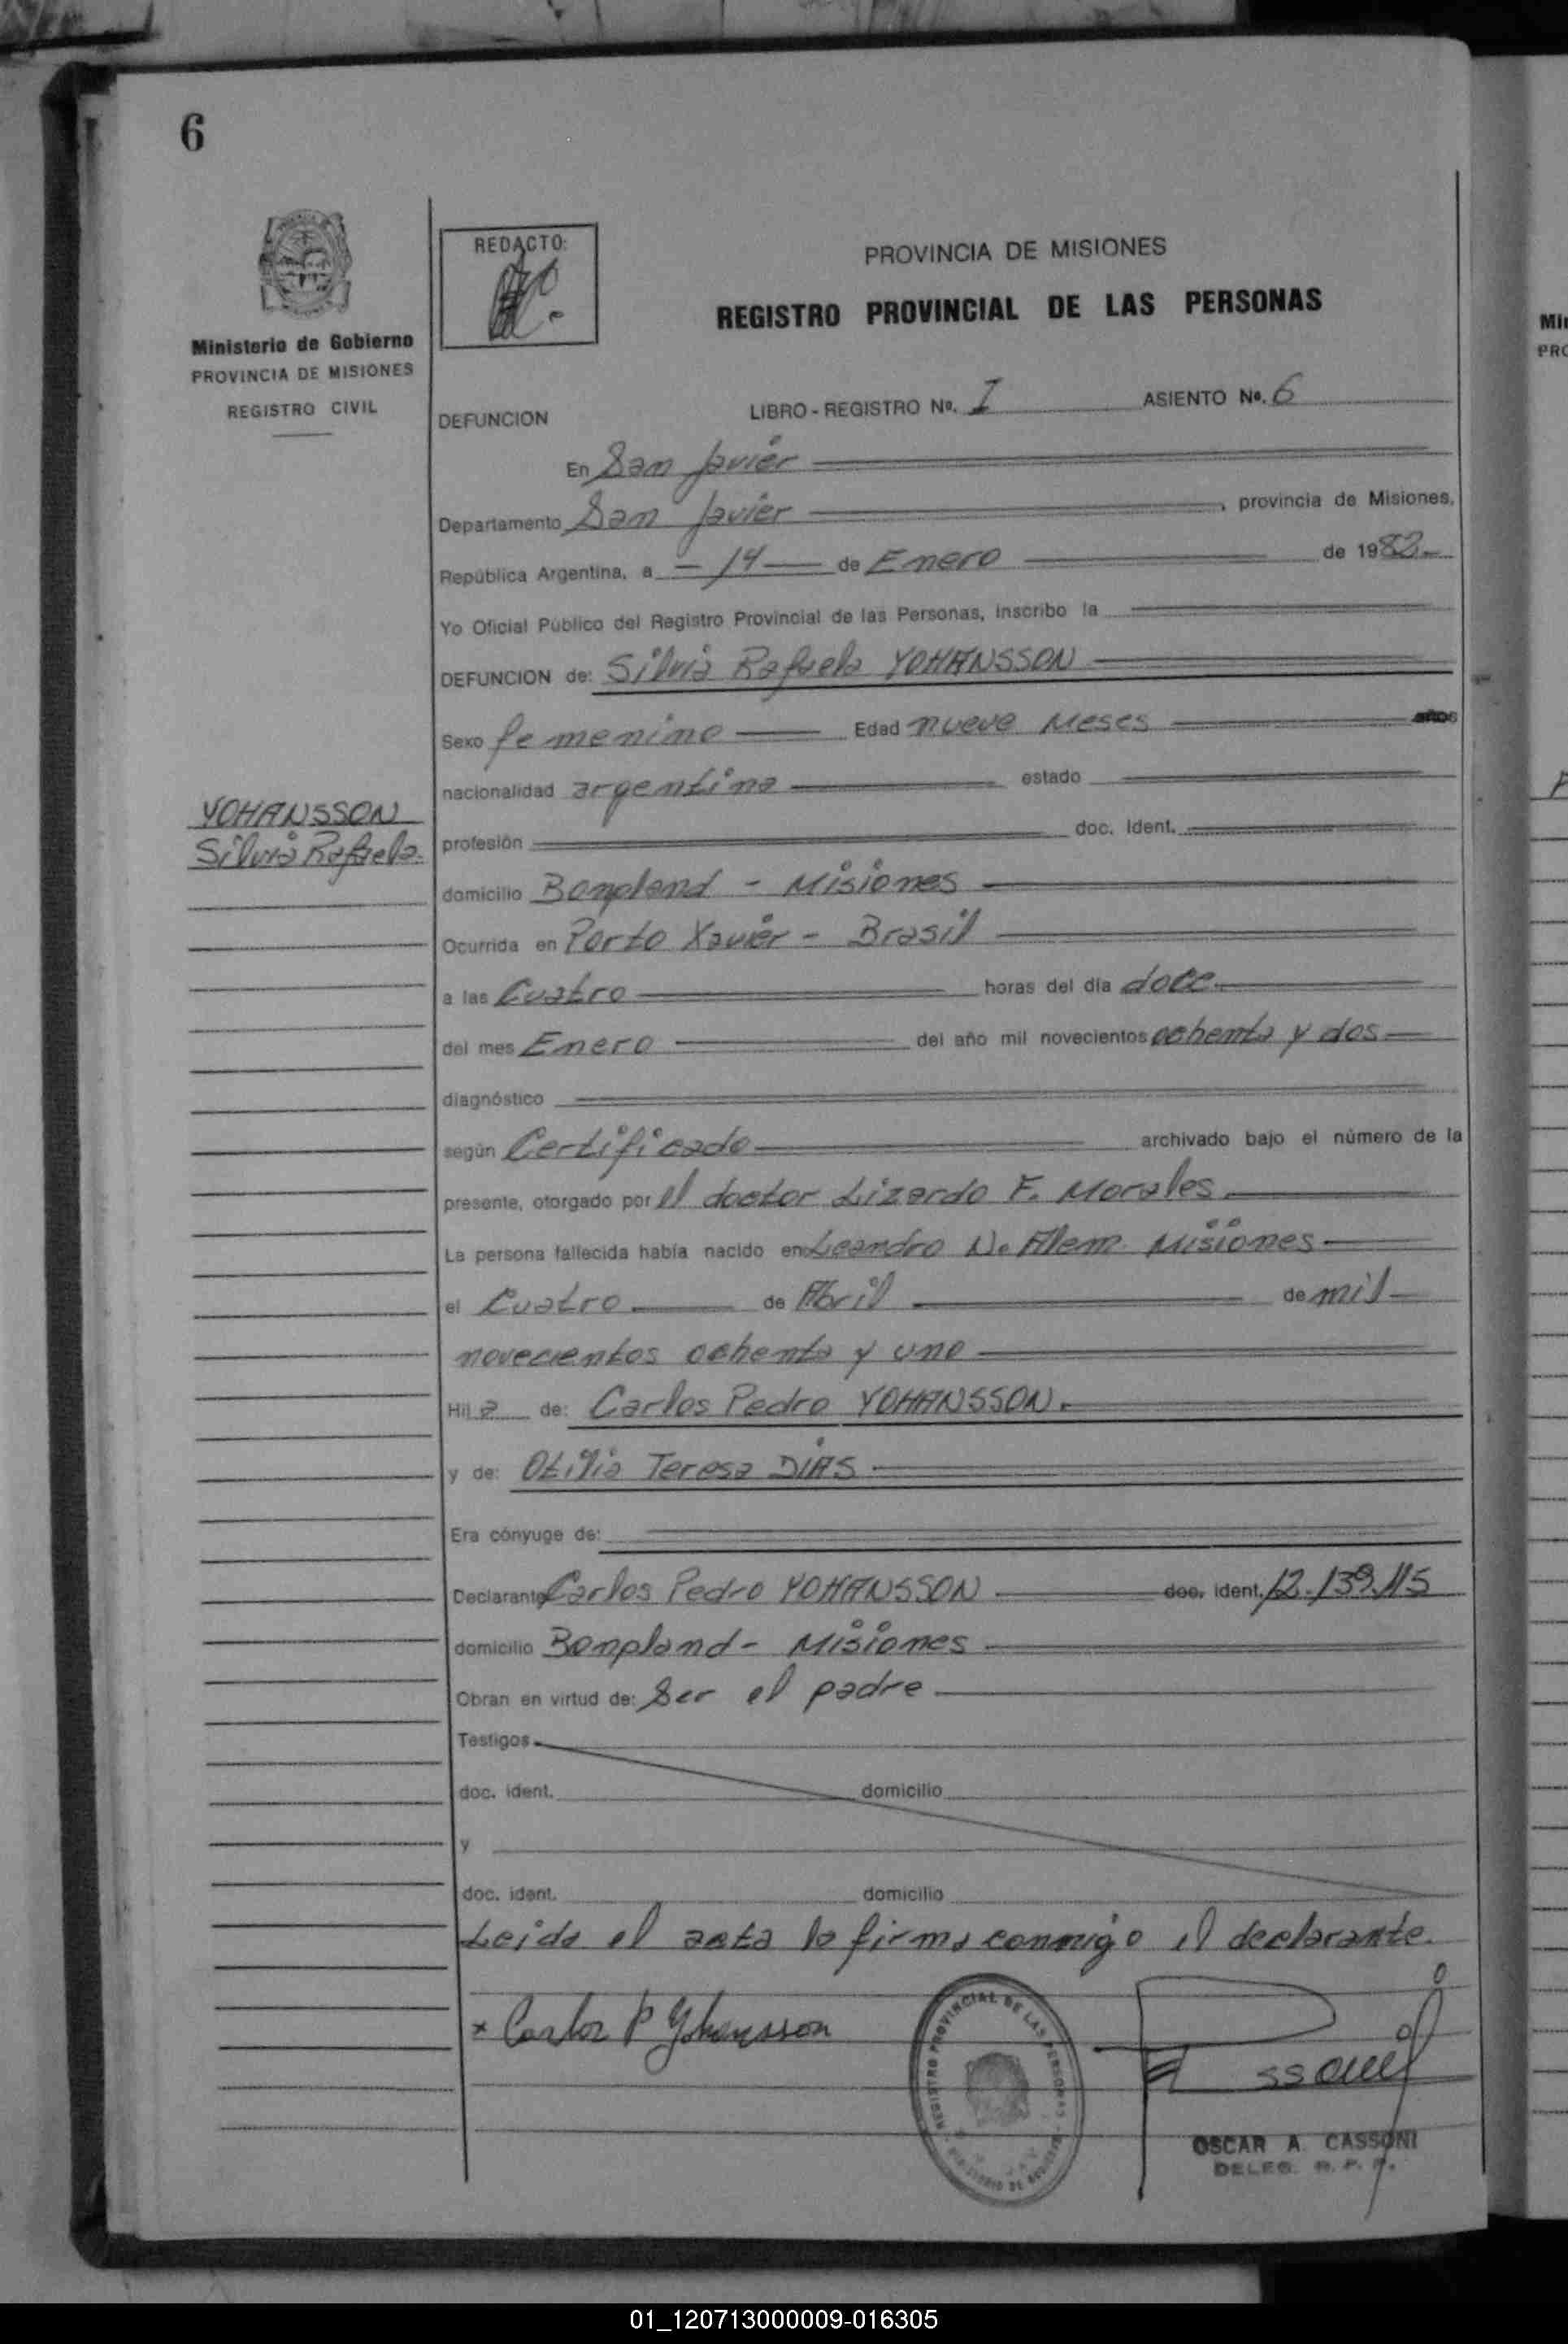 6
REDACTO:
PROVINCIA DE MISIONES
REGISTRO PROVINCIAL DE LAS PERSONAS
Ministerio de Gobierno
PROVINCIA DE MISIONES
REGISTRO CIVIL
DEFUNCION LIBRO - REGISTRO Nº. I ASIENTO Nº. 6
En San Javier
Departamento San Javier, provincia de Misiones,
República Argentina, a - 14 - de Enero de 1982.-
Yo Oficial Público del Registro Provincial de las Personas, inscribo la
DEFUNCION de: Silvia Rafaela YOHANSSON
Sexo femenino Edad nueve Meses años
nacionalidad argentina estado
YOHANSSON
Silvia Rafaela.
profesión doc. ident.
domicilio Bonpland - Misiones
Ocurrida en Porto Xavier - Brasil
a las Cuatro horas del día doce.
del mes Enero del año mil novecientos ochenta y dos
diagnóstico
según Certificado archivado bajo el número de la
presente, otorgado por el doctor Lizardo F. Morales
La persona fallecida había nacido en Leandro N. Alem. Misiones
el Cuatro de Abril de mil
novecientos ochenta y uno
Hija de: Carlos Pedro YOHANSSON.
y de: Otilia Teresa DIAS
Era cónyuge de:
Declarante Carlos Pedro YOHANSSON doc. ident. 12.139.115
domicilio Bonpland - Misiones
Obran en virtud de: Ser el padre
Testigos
doc. ident. domicilio
y
doc. ident. domicilio
Leida el acta la firma conmigo el declarante.
x Carlos P Yohansson
REGISTRO PROVINCIAL DE LAS PERSONAS
OSCAR A. CASSONI
DELEG. R. P. P.
01_120713000009-016305